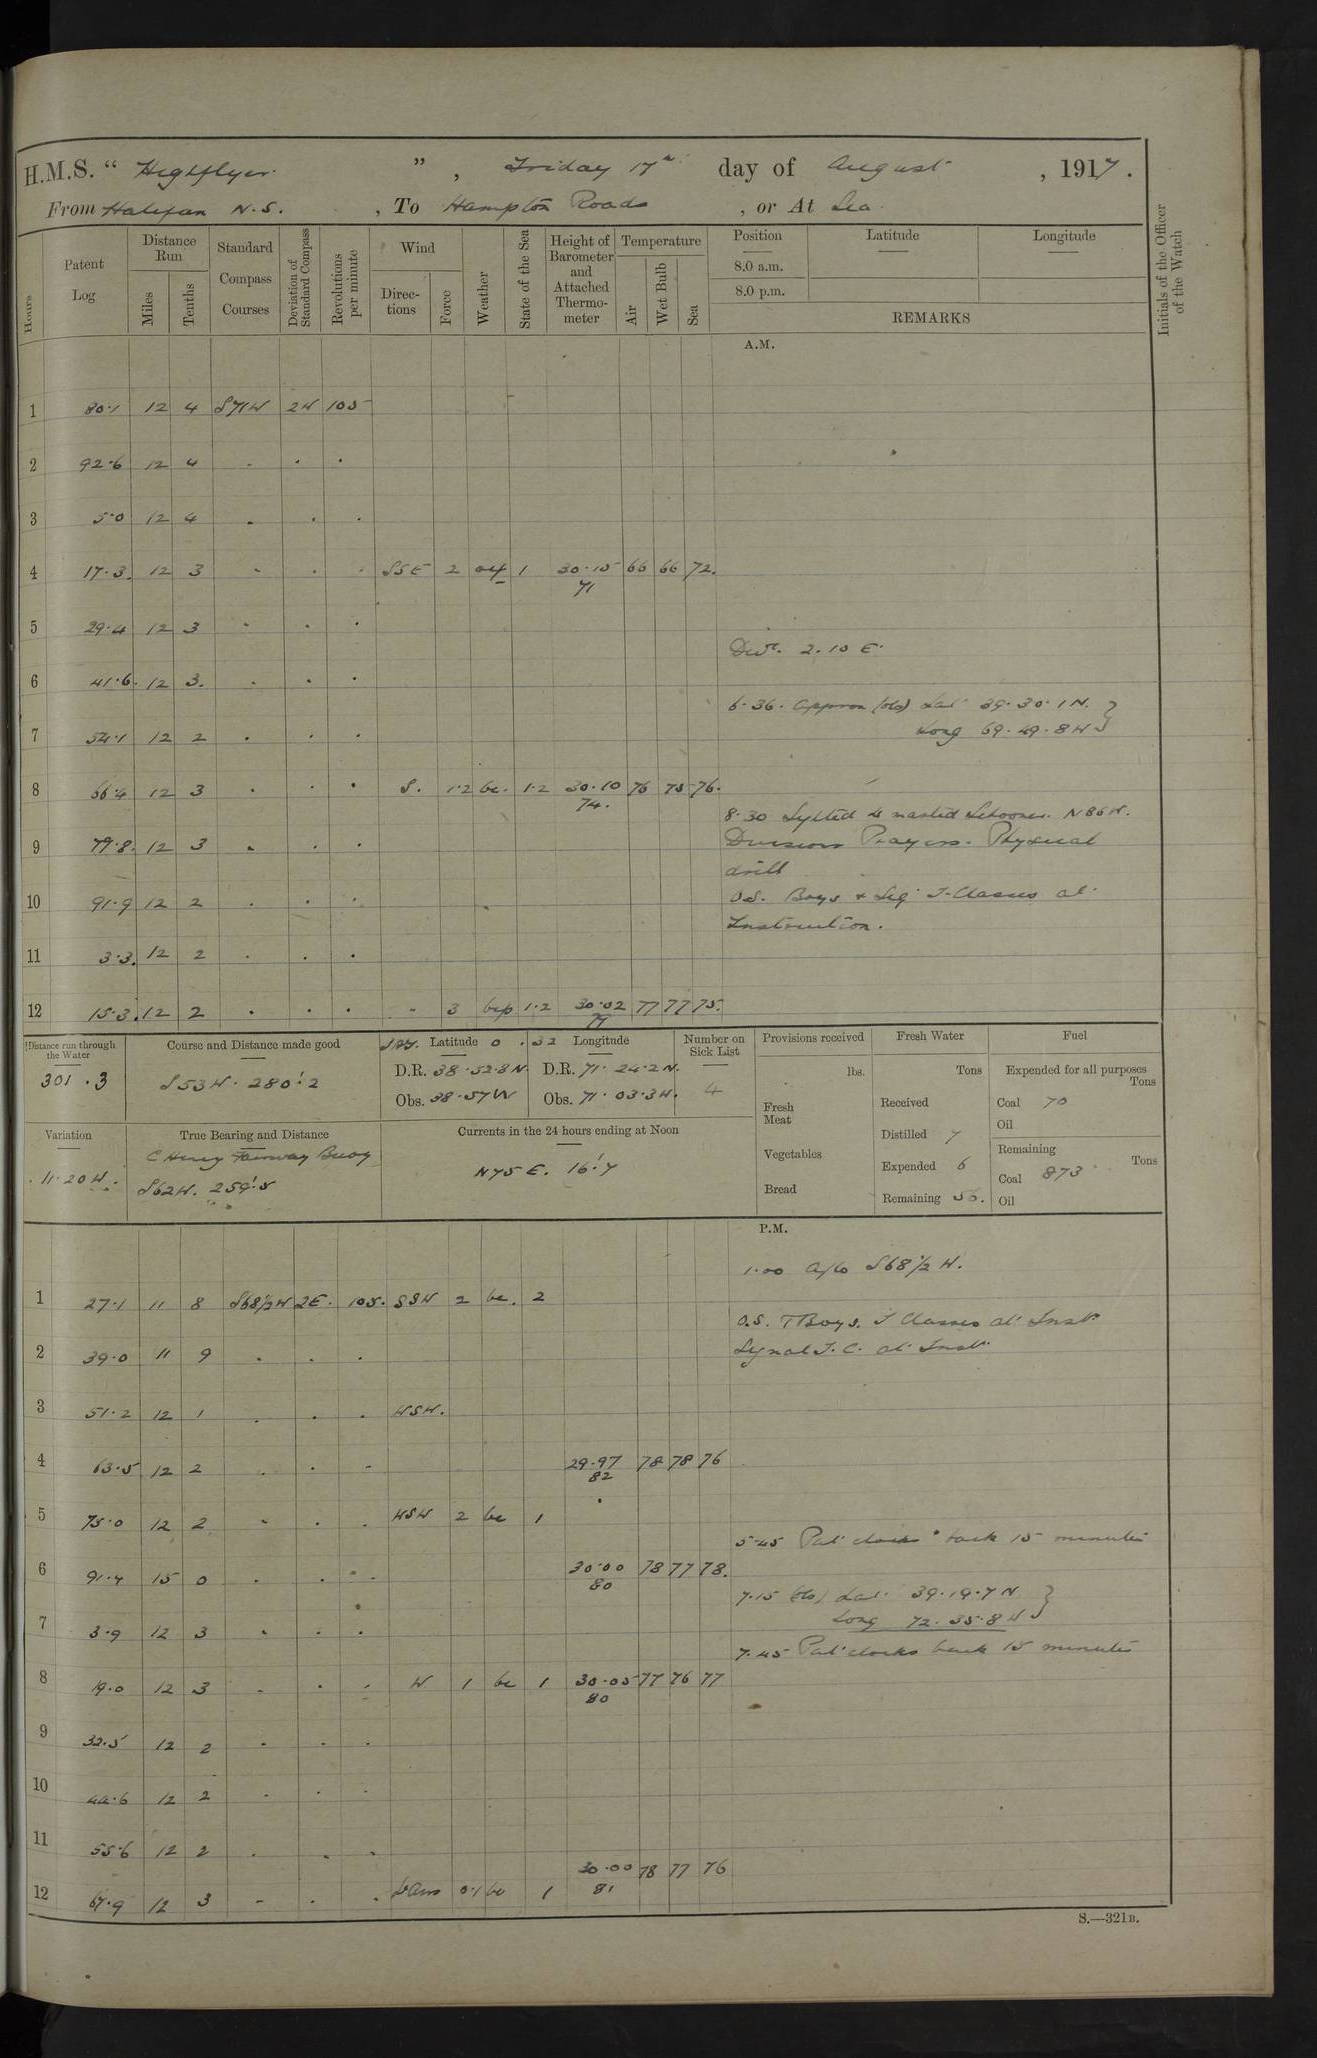 H.M.S. “ Highflyer ” , Friday 17th day of August , 1917 .
From Halifax N.S. , To Hampton Roads , or At Sea
Initials of the Officer of the Watch
Hours
Patent Log
Distance Run
Miles
Tenths
Standard Compass Courses
Deviation of Standard Compass
Revolutions per minute
Wind
Directions
Force
Weather
State of the Sea
Height of Barometer and Attached Thermometer
Temperature
Air
Wet Bulb
Sea
Position
8.0 a.m.
8.0 p.m.
Latitude
Longitude
REMARKS
A.M.
1 80.1 12 4 S71W 2W 105
2 92.6 12 4 . . .
3 5.0 12 4 . . .
4 17.3 12 3 . . . SSE 2 1 30.15 66 66 72.
71
5 29.4 12 3 . . .
Devn. 2.10 E.
6 41.6. 12 3. . . .
6.36. Approx (obs) Lat 39.30.1N. }
7 54.1 12 2 . . .
Long 69.49.8W }
8 66.4 12 3 . . . S. 1.2 bc. 1.2 30.10 76 75 76.
74.
8.30 Sighted 4 masted Schooner. N86W.
9 79.8. 12 3 . . .
Divisions Prayers. Physical
drill
10 91.9 12 2 . . .
O.S. Boys & Sig. T. Classes at
Instruction.
11 3.3. 12 2 . . .
12 15.3. 12 2 . . . " 3 bcp 1.2 30.02 77 77 75.
Distance run through the Water
301 . 3
Course and Distance made good
S53W. 280'.2
Latitude 0 . 32 Longitude
D.R. 38.52.8N. D.R. 71.24.2W.
Obs. 38.57N Obs. 71.03.3W.
Number on Sick List
4
Provisions received
lbs.
Fresh Meat
Vegetables
Bread
Fresh Water
Tons
Received
Distilled 7
Expended 6
Remaining 56.
Fuel
Expended for all purposes
Tons
Coal 70
Oil
Remaining
Tons
Coal 873
Oil
Variation
11.20W.
True Bearing and Distance
C Henry Fairway Buoy
S62W. 259'.5
Currents in the 24 hours ending at Noon
N75E. 16'.7
P.M.
1.00 A/co S68½W.
1 27.1 11 8 S68½W 2E. 105. SSW 2 bc. 2
O.S. Boys. T Classes at Inst.
2 39.0 11 9 . . .
Signal T.C. at Inst.
3 51.2 12 1 . . . WSW.
4 63.5 12 2 . . . 29.97 78 78 76
82
5 75.0 12 2 . . . WSW 2 bc 1
5.45 Put clocks back 15 minutes
6 91.4 15 0 . . . 30.00 78 77 78.
80
7.15 (obs) Lat. 39.19.7N }
7 3.9 12 3 . . .
Long 72.35.8W }
7.45 Put clocks back 15 minutes
8 19.0 12 3 . . . W 1 bc 1 30.05 77 76 77
80
9 32.5 12 2 . . .
10 44.6 12 2 . . .
11 55.6 12 2 . . .
12 67.9 12 3 . . . 0.1 bc 1 30.00 78 77 76
81
S.—321B.